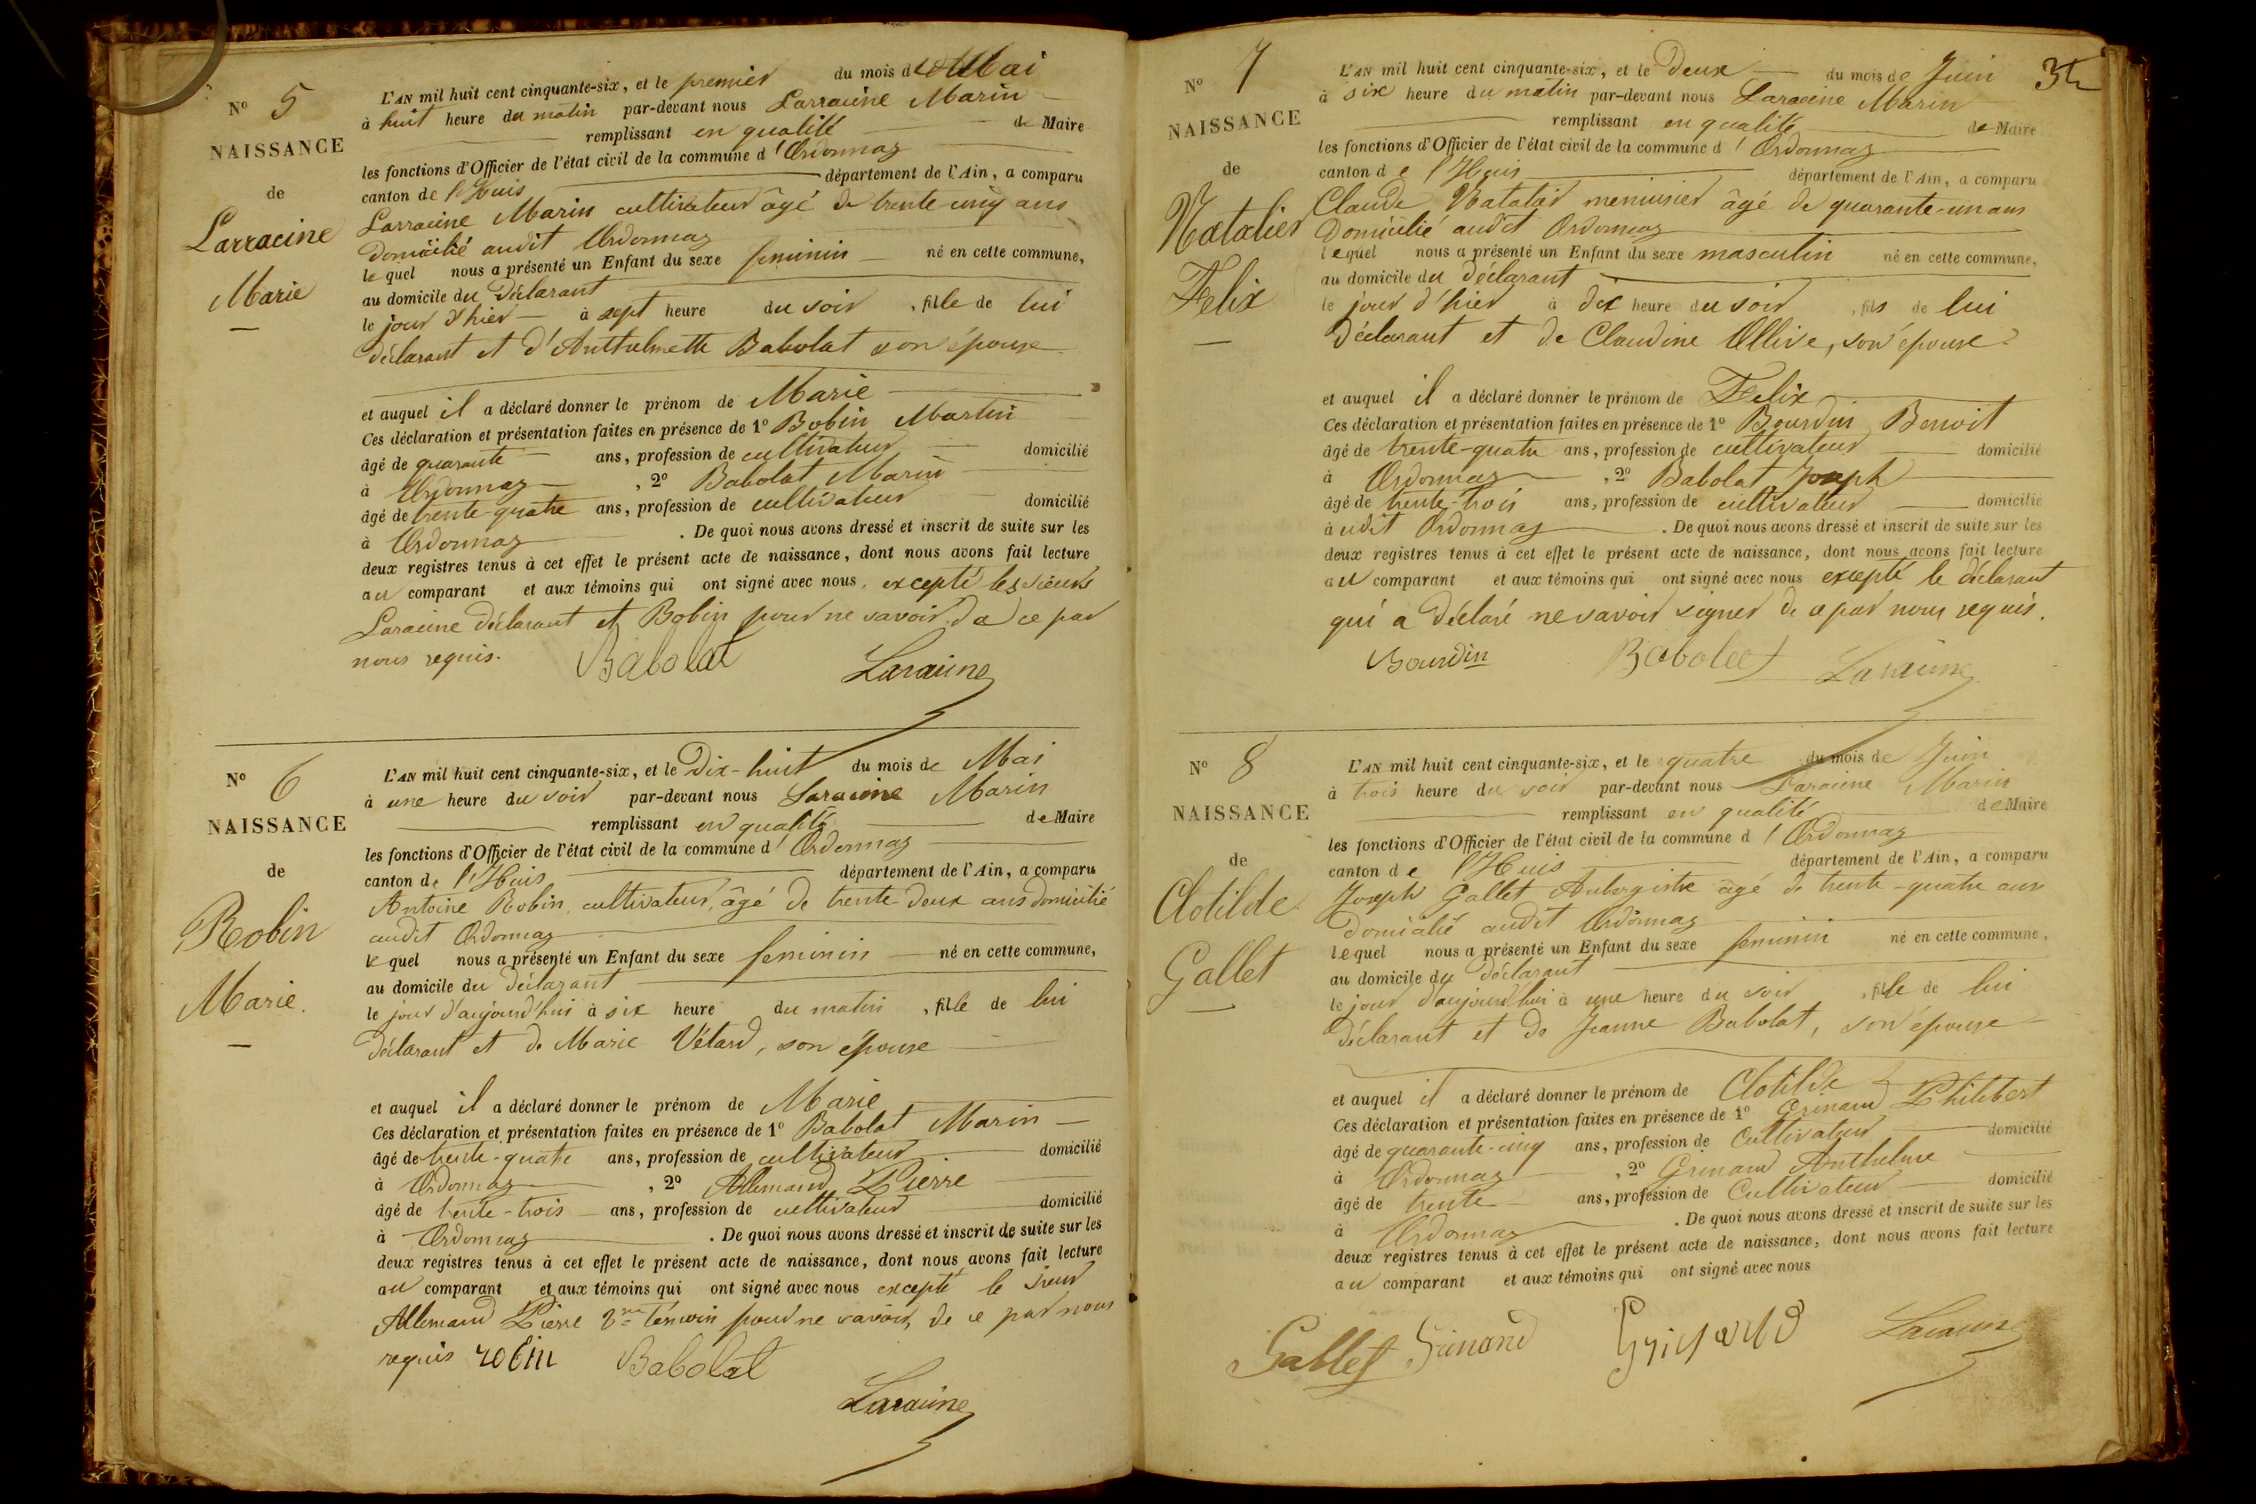 N° 5
NAISSANCE
de
Larracine
Marie
L'AN mil huit cent cinquante-six, et le premier du mois de Mai
à huit heure du matin par-devant nous Larracine Marin
remplissant en qualité de Maire
les fonctions d'Officier de l'état civil de la commune d'Ordonnaz
canton de l'Huis département de l'Ain, a comparu
Larracine Marin cultivateur âgé de trente cinq ans
domicilié audit Ordonnaz
lequel nous a présenté un Enfant du sexe feminin né en cette commune,
au domicile du déclarant
le jour d'hier à sept heure du soir, fille de lui
déclarant et d'Anthelmette Babolat son épouse
et auquel il a déclaré donner le prénom de Marie
Ces déclaration et présentation faites en présence de 1° Bobin Martin
âgé de quarante ans, profession de cultivateur domicilié
à Ordonnaz, 2° Babolat Marin
âgé de trente-quatre ans, profession de cultivateur domicilié
à Ordonnaz. De quoi nous avons dressé et inscrit de suite sur les
deux registres tenus à cet effet le présent acte de naissance, dont nous avons fait lecture
au comparant et aux témoins qui ont signé avec nous, excepté les sieurs
Laracine déclarant et Bobin pour ne savoir, de ce par
nous requis. Babolat Laracine
N° 6
NAISSANCE
de
Robin
Marie.
L'AN mil huit cent cinquante-six, et le Dix-huit du mois de Mai
à une heure du soir par-devant nous Laracine Marin
remplissant en qualité de Maire
les fonctions d'Officier de l'état civil de la commune d'Ordonnaz
canton de l'Huis département de l'Ain, a comparu
Antoine Robin, cultivateur, âgé de trente-deux ans domicilié
audit Ordonnaz
lequel nous a présenté un Enfant du sexe feminin né en cette commune,
au domicile du déclarant
le jour d'aujourd'hui à six heure du matin, fille de lui
déclarant et de Marie Vétard, son épouse
et auquel il a déclaré donner le prénom de Marie
Ces déclaration et présentation faites en présence de 1° Babolat Marin
âgé de trente-quatre ans, profession de cultivateur domicilié
à Ordonnaz, 2° Allemand Pierre
âgé de trente-trois ans, profession de cultivateur domicilié
à Ordonnaz. De quoi nous avons dressé et inscrit de suite sur les
deux registres tenus à cet effet le présent acte de naissance, dont nous avons fait lecture
au comparant et aux témoins qui ont signé avec nous excepté le sieur
Allemand Pierre 2me témoin pour ne savoir, de ce par nous
requis robin Babolat
Laracine
N° 7
NAISSANCE
de
Natalier
Felix
L'AN mil huit cent cinquante-six, et le Deux du mois de Juin
à six heure du matin par-devant nous Laracine Marin
remplissant en qualité de Maire
les fonctions d'Officier de l'état civil de la commune d'Ordonnaz
canton de l'Huis département de l'Ain, a comparu
Claude Natalier menuisier âgé de quarante-un ans
domicilié audit Ordonnaz
lequel nous a présenté un Enfant du sexe masculin né en cette commune,
au domicile du déclarant
le jour d'hier à dix heure du soir, fils de lui
déclarant et de Claudine Ollive, son épouse
et auquel il a déclaré donner le prénom de Felix
Ces déclaration et présentation faites en présence de 1° Bourdin Benoit
âgé de trente-quatre ans, profession de cultivateur domicilié
à Ordonnaz, 2° Babolat Joseph
âgé de trente-trois ans, profession de cultivateur domicilié
à udit Ordonnaz. De quoi nous avons dressé et inscrit de suite sur les
deux registres tenus à cet effet le présent acte de naissance, dont nous avons fait lecture
au comparant et aux témoins qui ont signé avec nous excepté le déclarant
qui a déclaré ne savoir signer de ce par nous requis.
Bourdin Babolat Laracine
N° 8
NAISSANCE
de
Clotilde
Gallet
L'AN mil huit cent cinquante-six, et le quatre du mois de Juin
à trois heure du soir par-devant nous Laracine Marin
remplissant en qualité de Maire
les fonctions d'Officier de l'état civil de la commune d'Ordonnaz
canton de l'Huis département de l'Ain, a comparu
Joseph Gallet Aubergiste âgé de trente-quatre ans
domicilié audit Ordonnaz
lequel nous a présenté un Enfant du sexe feminin né en cette commune,
au domicile du déclarant
le jour d'aujourd'hui à une heure du soir, fille de lui
déclarant et de Jeanne Babolat, son épouse
et auquel il a déclaré donner le prénom de Clotilde
Ces déclaration et présentation faites en présence de 1° Grinand Philibert
âgé de quarante-cinq ans, profession de Cultivateur domicilié
à Ordonnaz, 2° Grinand Anthelme
âgé de trente ans, profession de Cultivateur domicilié
à Ordonnaz. De quoi nous avons dressé et inscrit de suite sur les
deux registres tenus à cet effet le présent acte de naissance, dont nous avons fait lecture
au comparant et aux témoins qui ont signé avec nous
Gallet Grinand Laracine